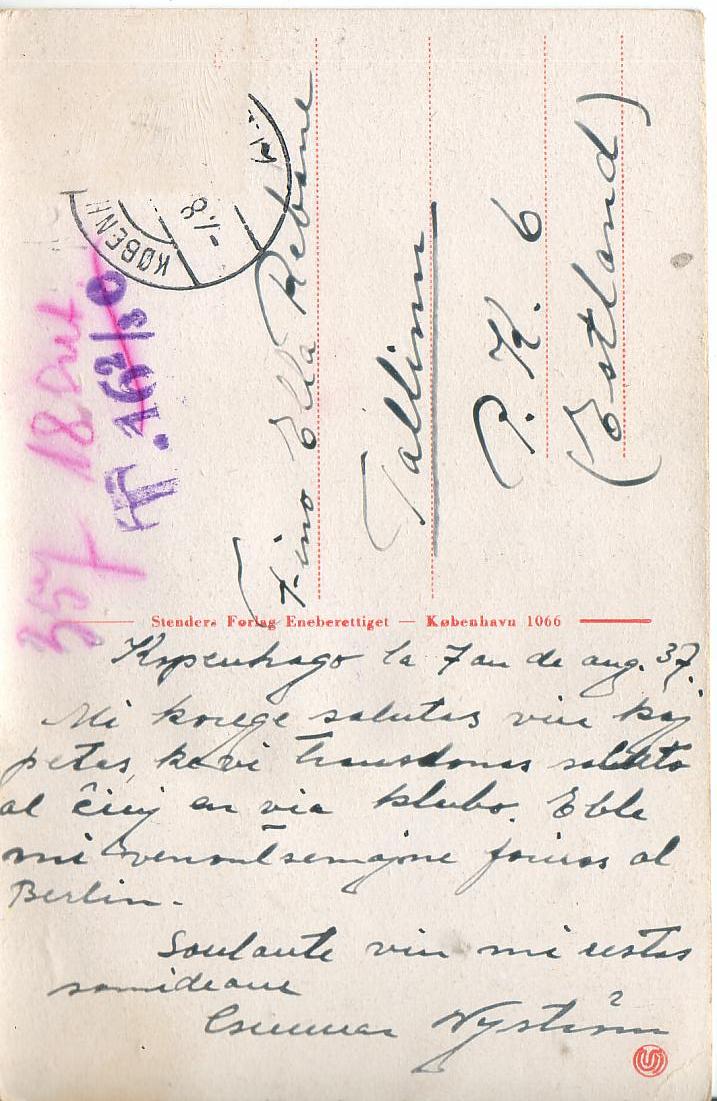 KØBENH
-7.8
357 18
T. 16 2/3 O
Fino Ella Rebane
Tallinn
P. K. 6
(Estland)
Stenders Forlag Eneberettiget — København 1066
Kopenhago la 7an de aug. 37.
Mi korege salutas vin kaj
petas, ke vi transdonas saluto
al ĉiuj en via klubo. Eble
mi venontsemajne foiros al
Berlin.
Soulante vin mi restas
samideane
Gunnar Nyström